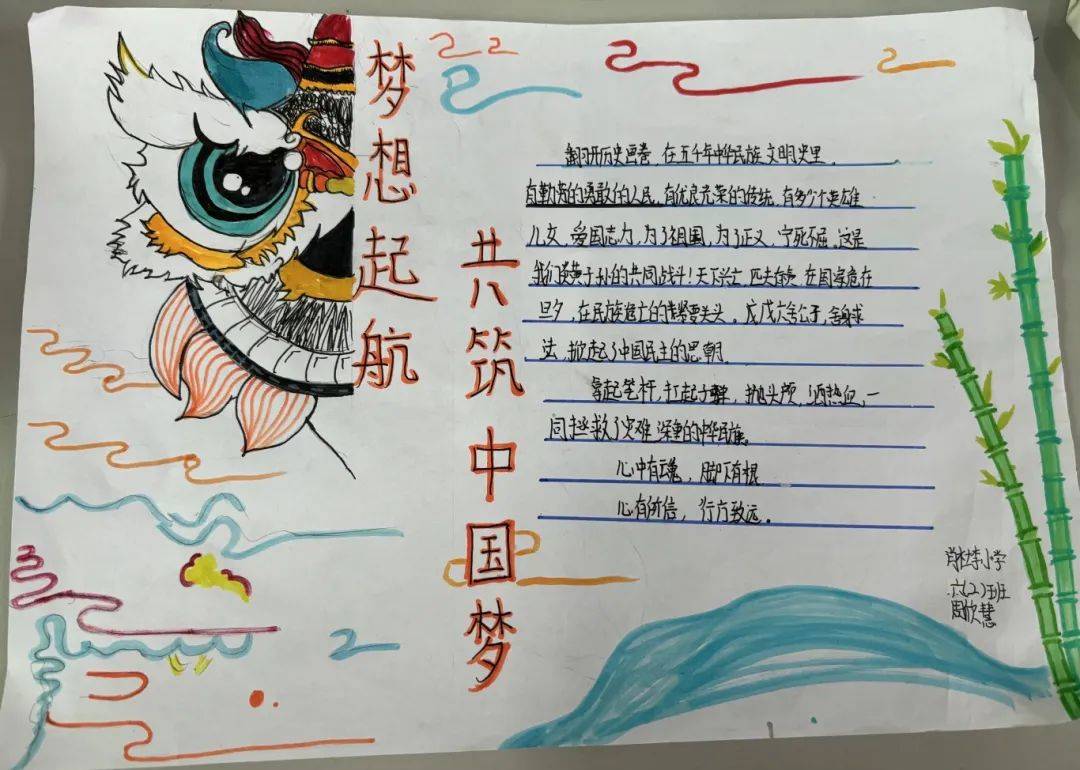 梦想起航
共筑中国梦
翻开历史画卷，在五千年中华民族文明史里，
有勤劳的勇敢的人民，有优良光荣的传统，有多少个英雄
儿女，爱国志力，为了祖国，为了正义，宁死不屈，这是
我们炎黄子孙的共同战斗！天下兴亡，匹夫有责，在国家危在
旦夕，在民族危亡的紧要关头，戊戌六君子，舍身求
法，掀起了中国民主的思朝。
拿起笔杆，扛起，抛头颅，洒热血，一
同拯救了灾难深重的中华民族。
心中有魂，脚下有根
心有所信，行方致远。
李小学
六(2)班
周欣慧